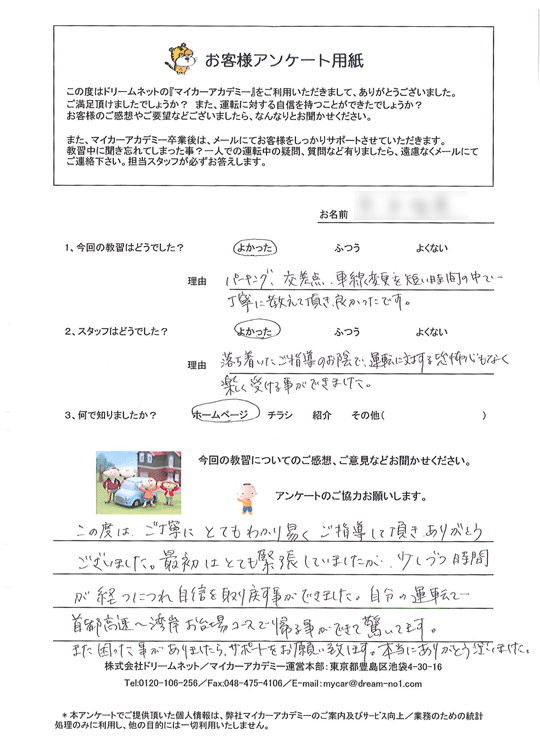 お客様アンケート用紙
この度はドリームネットの『マイカーアカデミー』をご利用いただきまして、ありがとうございました。
ご満足頂けましたでしょうか? また、運転に対する自信を持つことができたでしょうか?
お客様のご感想やご要望などございましたら、なんなりとお聞かせください。
また、マイカーアカデミー卒業後は、メールにてお客様をしっかりサポートさせていただきます。
教習中に聞き忘れてしまった事?一人での運転中の疑問、質問など有りましたら、遠慮なくメールにて
ご連絡下さい。担当スタッフが必ずお答えします。
お名前
1、今回の教習はどうでした? よかった ふつう よくない
理由 パーキング、交差点、車線変更を短い時間の中で
丁寧に教えて頂き、良かったです。
2、スタッフはどうでした? よかった ふつう よくない
理由 落ち着いたご指導のお陰で、運転に対する恐怖心もなく
楽しく受ける事ができました。
3、何で知りましたか? ホームページ チラシ 紹介 その他( )
今回の教習についてのご感想、ご意見などお聞かせください。
アンケートのご協力お願いします。
この度は、ご丁寧に とてもわかり易く ご指導して頂き ありがとう
ございました。最初はとても緊張していましたが、少しづつ時間
が経つにつれ自信を取り戻す事ができました。自分の運転で
首都高速〜湾岸 お台場コースで帰る事ができて驚いてます。
また困った事がありましたら、サポートをお願い致します。本当にありがとうございました。
株式会社ドリームネット/マイカーアカデミー運営本部:東京都豊島区池袋4-30-16
Tel:0120-106-256/Fax:048-475-4106/E-mail:mycar@dream-no1.com
*本アンケートでご提供頂いた個人情報は、弊社マイカーアカデミーのご案内及びサービス向上/業務のための統計
処理のみに利用し、他の目的には一切利用いたしません。